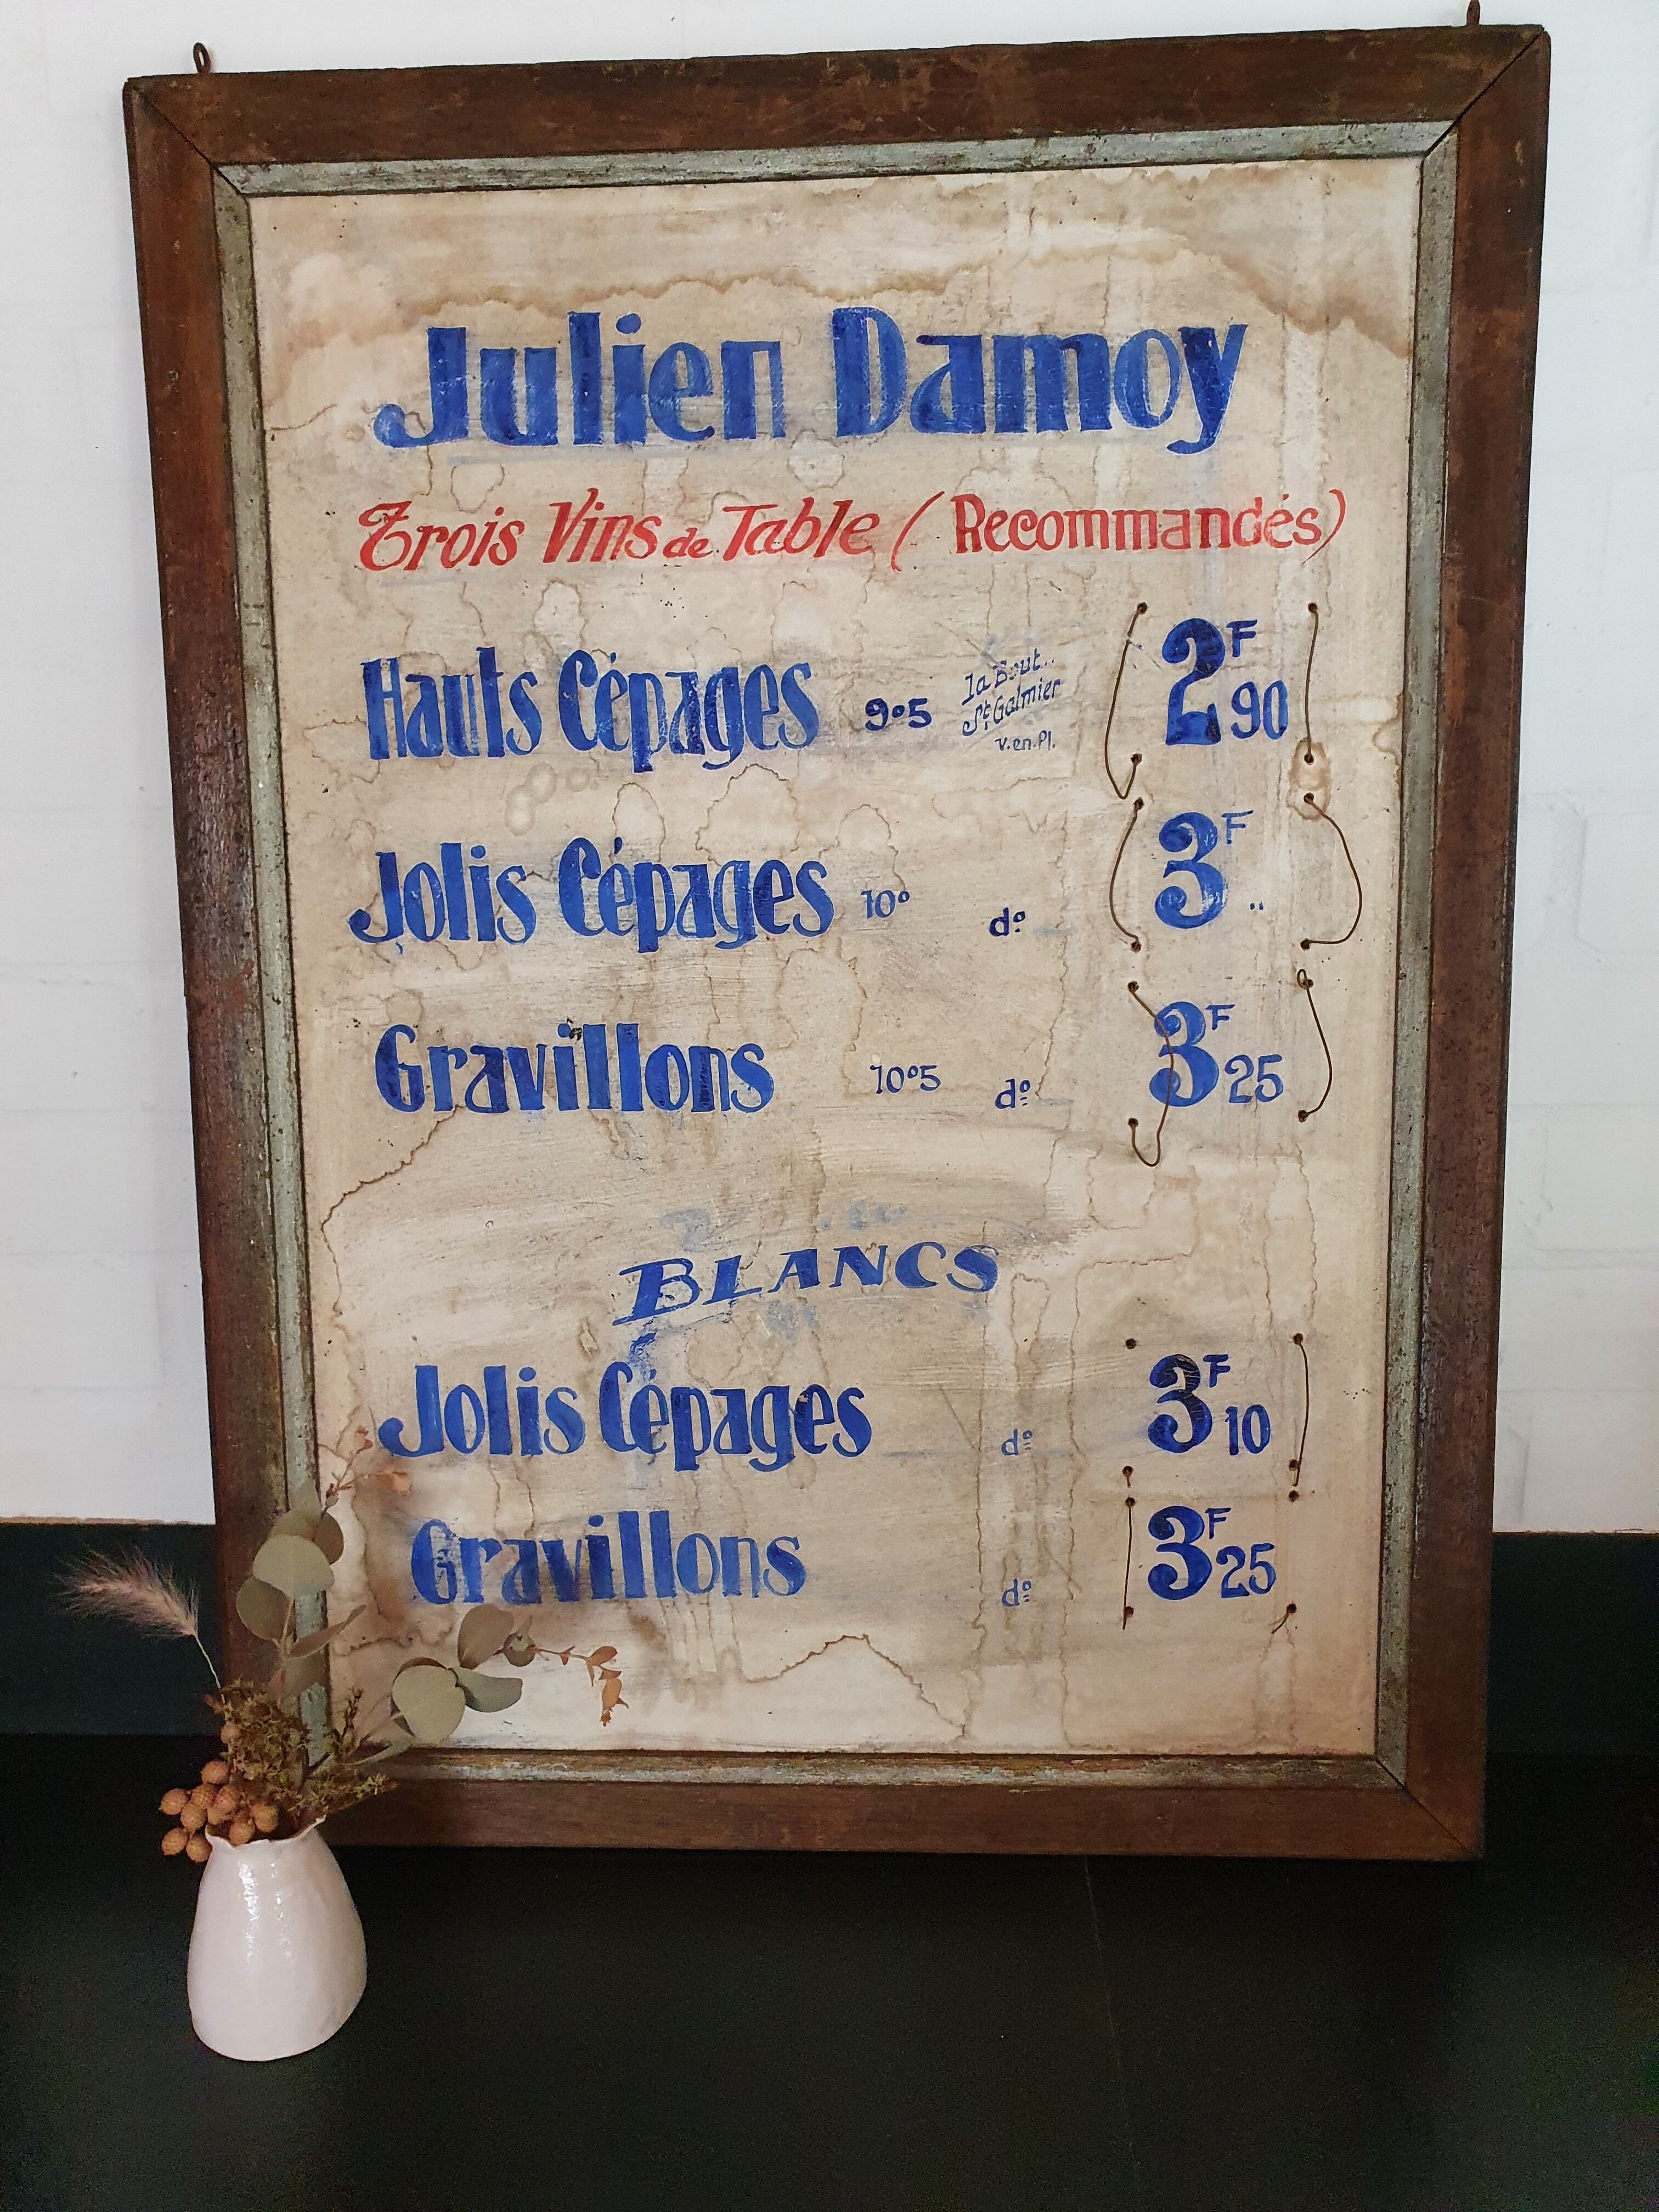 Julien Damoy
Trois Vins de Table (Recommandés)
Hauts Cépages 9°5 la Bout.. St Galmier v.en.Pl. 2F 90
Jolis Cépages 10° d° 3F ..
Gravillons 10°5 d° 3F 25
BLANCS
Jolis Cépages d° 3F 10
Gravillons d° 3F 25